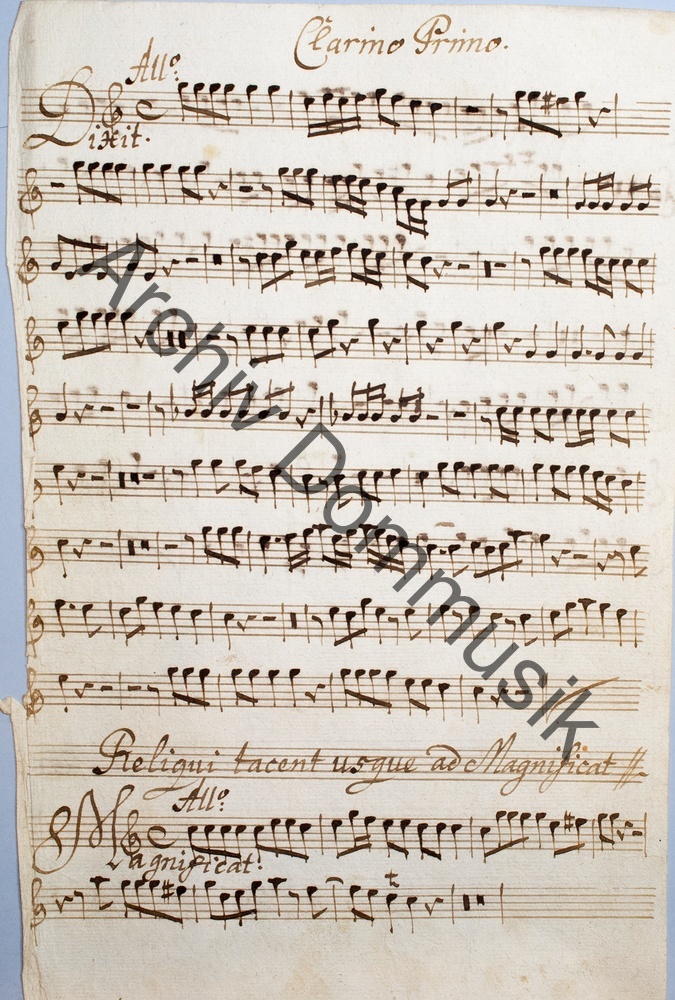 Clarino Primo.
All.º
Dixit.
Reliqui tacent usque ad Magnificat
All.º
Magnificat.
t
Archiv Dommusik